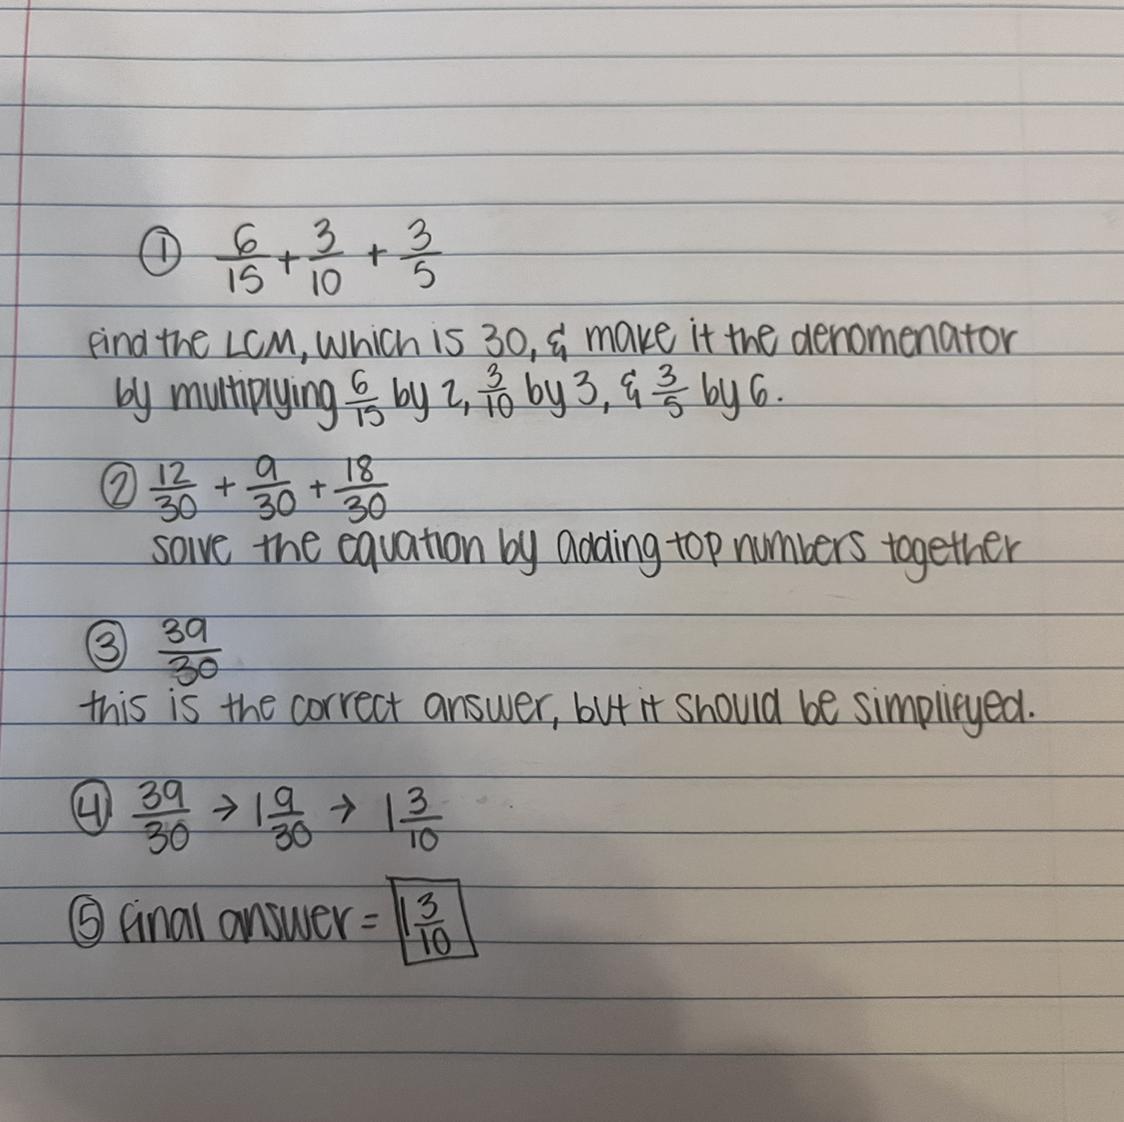 ① 6/15 + 3/10 + 3/5
find the LCM, which is 30, & make it the denomenator
by multiplying 6/15 by 2, 3/10 by 3, & 3/5 by 6.
② 12/30 + 9/30 + 18/30
solve the equation by adding top numbers together
③ 39/30
this is the correct answer, but it should be simplifyed.
④ 39/30 → 1 9/30 → 1 3/10
⑤ final answer = 1 3/10